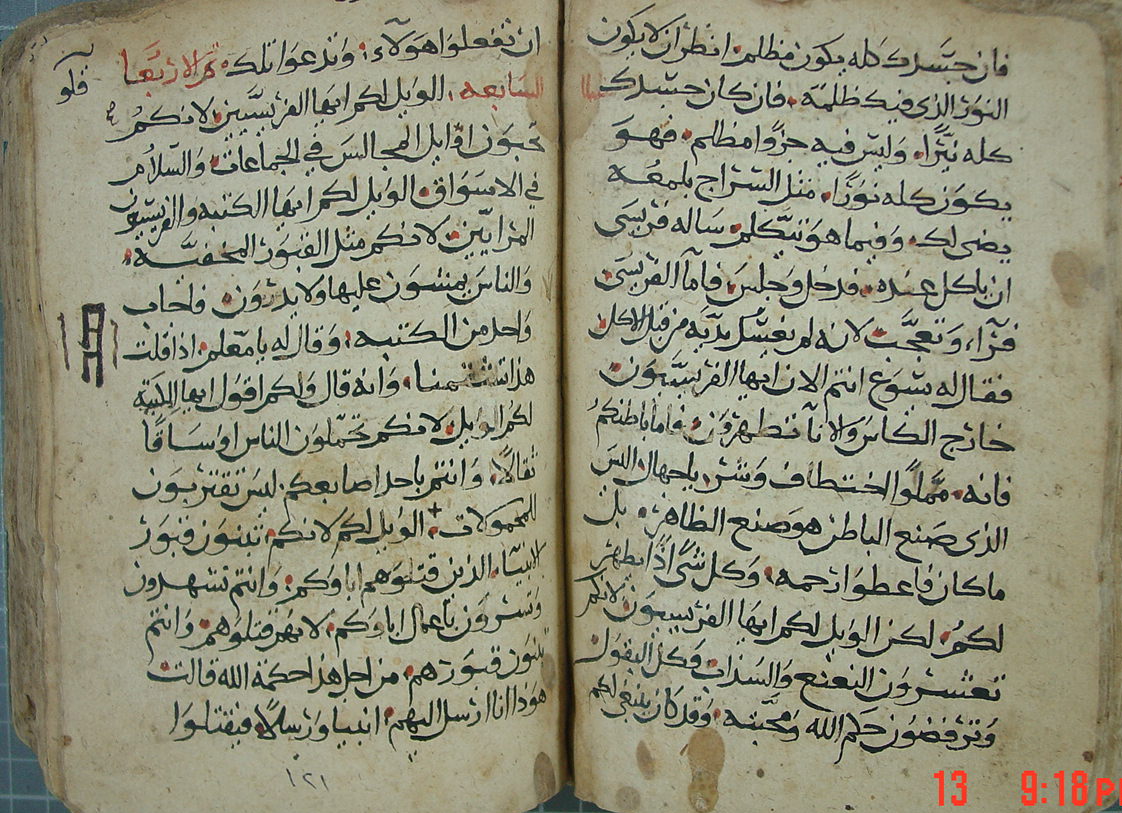 فان جسدك كله يكون مظلم. انظر ان لا يكون
النور الذى فيك ظلمه. فان كان جسدك
كله نيّرًا. وليس فيه جزوًا مظلم. فهو
يكون كله نورًا. مثل السراج بلمعه
يضى لك. وفيما هو يتكلم. ساله فريسى
ان ياكل عنده. فدخل وجلس. فاما الفريسى
فرآء. وتعجّب لانه لم يغسل يديه من قبل الاكل
فقال له يسوع انتم الان ايها الفريسيون.
خارج الكاس والانآ تطهرون. فاما باطنكم
فانه مملوا اختطاف وشر. ياجهال اليس
الذى صنع الباطن هو صنع الظاهر. بل
ما كان فاعطوا رحمه. وكل شى اذًا يطهر
لكم. لكن الويل لكم ايها الفريسيون. لانكم
تعشرون النعنع والسذاب وكل البقول
وترفضون حكم الله ومحبته. وقد كان ينبغى لكم
ان تفعلوا هولاء. وتدعوا تلك. قر الاربعا
السابعه. الويل لكم ايها الفريسيين لانكم
تحبون اوايل المجالس فى الجماعات. والسلام
فى الاسواق. الويل لكم ايها الكتبه والفريسيون
المرايّين. لانكم مثل القبور المخفيّه.
والناس يمشون عليها ولا يدرون. فاجاب
واحد من الكتبه. وقال له يا معلم. اذا قلت
هذا تشتمنا. وانه قال ولكم اقول ايها الكتبه
لكم الويل. لانكم تحمّلون الناس اوساقًا
ثقالًا. وانتم باحد اصابعكم ليس تقتربون
للمحمولات. الويل لكم لانكم تبنون قبور
الانبيآء الذين قتلوهم اباوكم. وانتم تشهدون
وتسرون باعمال اباوكم. لانهم قتلوهم. وانتم
تبنون قبورهم. من اجل هذا حكمة الله قالت
هوذا انا ارسل اليهم. انبيا ورسلًا. فيقتلوا
١٢١
13 9:18 P